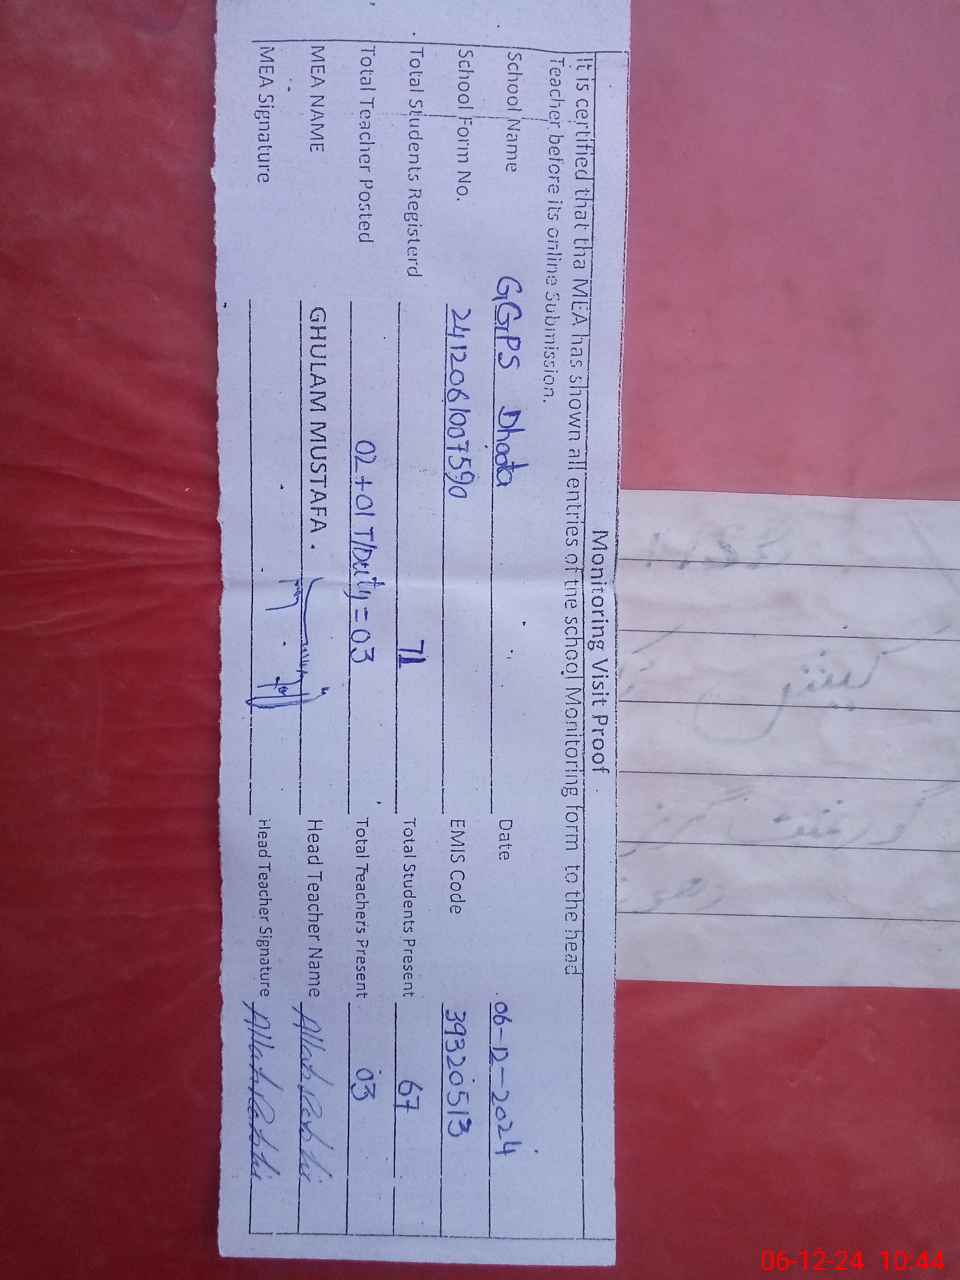 Monitoring Visit Proof
It is certified that tha MEA has shown all entries of the school Monitoring form to the head
Teacher before its online Submission.
School Name GGPS Dhoota Date 06-12-2024
School Form No. 2412061007590 EMIS Code 39320513
Total Students Registerd 71 Total Students Present 67
Total Teacher Posted 02+01 T/Duty=03 Total Teachers Present 03
MEA NAME GHULAM MUSTAFA. Head Teacher Name Allah Rakhi
MEA Signature Head Teacher Signature Allah Rakhi
06-12-24 10:44